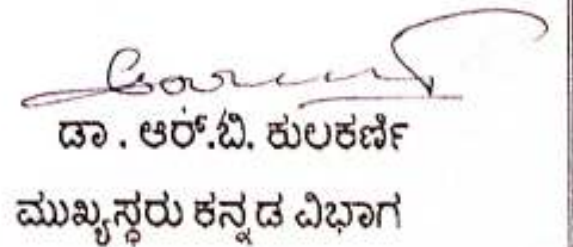 ಡಾ . ಆರ್.ಬಿ. ಕುಲಕರ್ಣಿ
ಮುಖ್ಯಸ್ಥರು ಕನ್ನಡ ವಿಭಾಗ